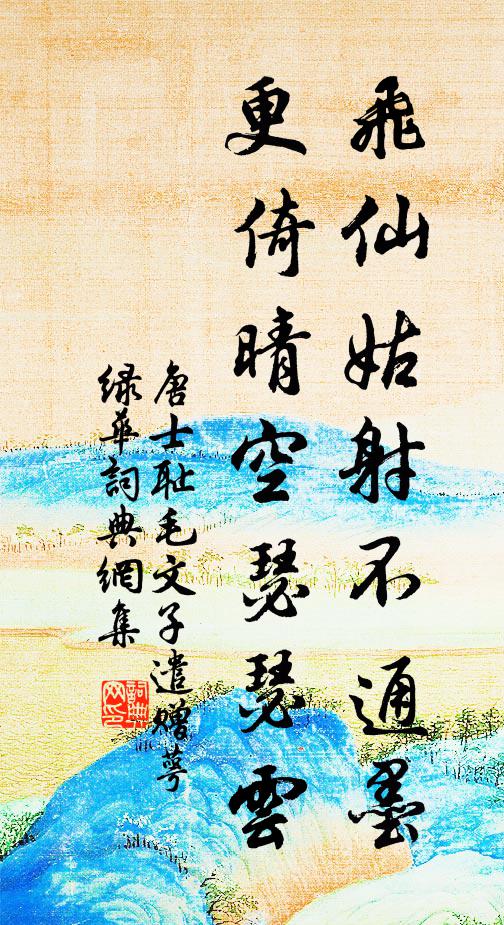 飛仙姑射不通墨
更倚晴空瑟瑟雲
唐士恥毛文子遣贈萼
綠華詞典網集
詞典網印